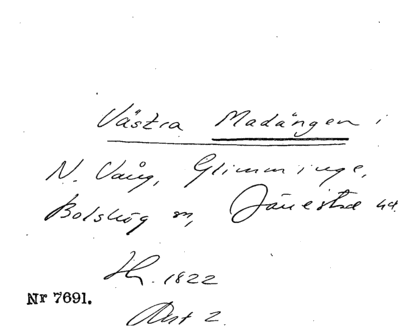 Västra Madängen i
N. Vång, Glimminge,
Bolshög m, Järrestad hd.
Hr. 1822
Nr 7691.
Akt 2.